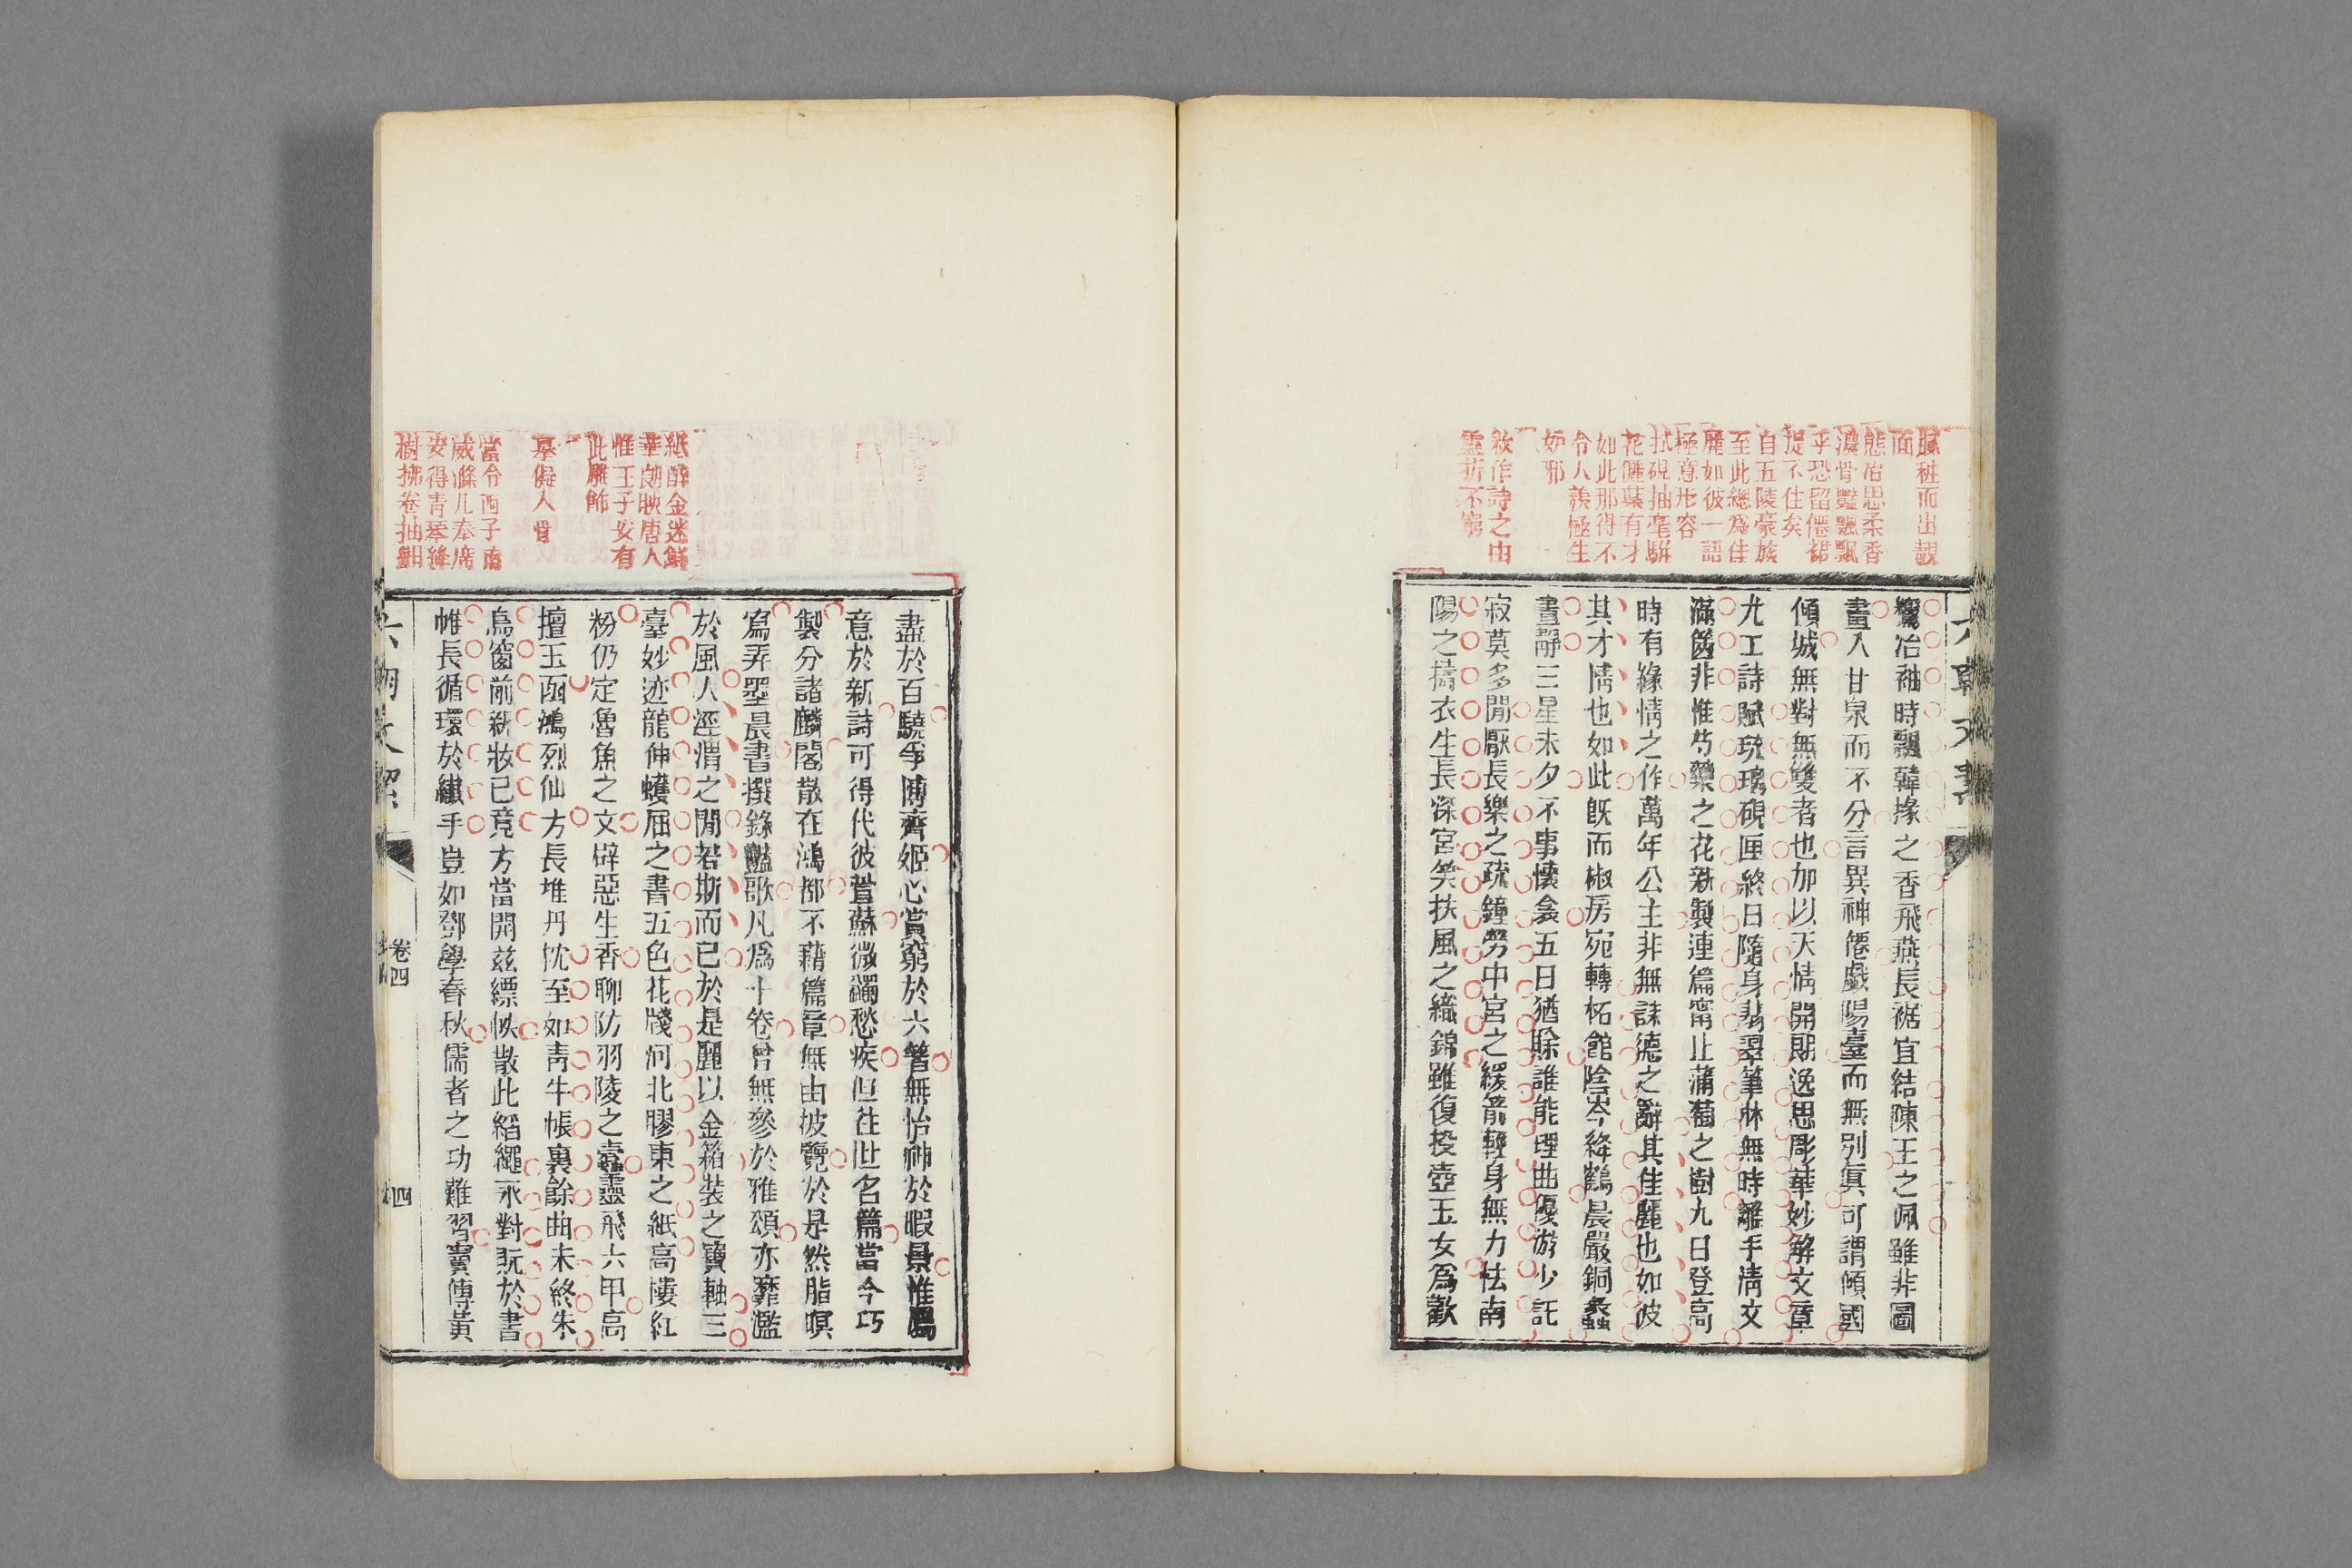 膩粧而出靚
面
態冶思柔香
濃骨豔飄飄
乎恐留僊裙
捉不住矣
自五陵豪族
至此總爲佳
麗如彼一語
極意形容
拭硯抽毫駢
花儷葉有才
如此那得不
令人羨極生
妒邪
敘作詩之由
靈折不窮
驚鸞冶袖時飄韓掾之香飛燕長裾宜結陳王之佩雖非圖
畫入甘泉而不分言異神僊戲陽臺而無別眞可謂傾國
傾城無對無雙者也加以天情開朗逸思彫華妙解文章
尤工詩賦琉璃硯匣終日隨身翡翠筆牀無時離手淸文
滿篋非惟芍藥之花新製連篇甯止蒲萄之樹九日登高
時有緣情之作萬年公主非無誄德之辭其佳麗也如彼
其才情也如此旣而椒房宛轉柘館陰岑絳鶴晨嚴銅蠡
晝靜三星未夕不事懷衾五日猶賒誰能理曲優游少託
寂莫多閒厭長樂之疏鐘勞中宮之緩箭輕身無力怯南
陽之擣衣生長深宮笑扶風之織錦雖復投壺玉女爲歡
六朝文絜
紙醉金迷鮮
華朗映唐人
惟王子安有
此雕飾
摹儗入骨
當令西子南
威滌几奉席
安得青琴絳
樹拂卷抽緗
盡於百驍爭博齊姬心賞窮於六箸無怡神於暇景惟屬
意於新詩可得代彼萱蘇微蠲愁疾但往世名篇當今巧
製分諸麟閣散在鴻都不藉篇章無由披覽於是然脂暝
寫弄墨晨書撰錄豔歌凡爲十卷曾無參於雅頌亦靡濫
於風人涇渭之閒若斯而已於是麗以金箱裝之寶軸三
臺妙迹龍伸蠖屈之書五色花牋河北膠東之紙高樓紅
粉仍定魯魚之文辟惡生香聊防羽陵之蠹靈飛六甲高
擅玉函鴻烈仙方長堆丹枕至如靑牛帳裏餘曲未終朱
鳥窗前新妝已竟方當開茲縹帙散此縚繩永對翫於書
帷長循環於纖手豈如鄧學春秋儒者之功難習竇傳黃
六朝文絜
卷四
四